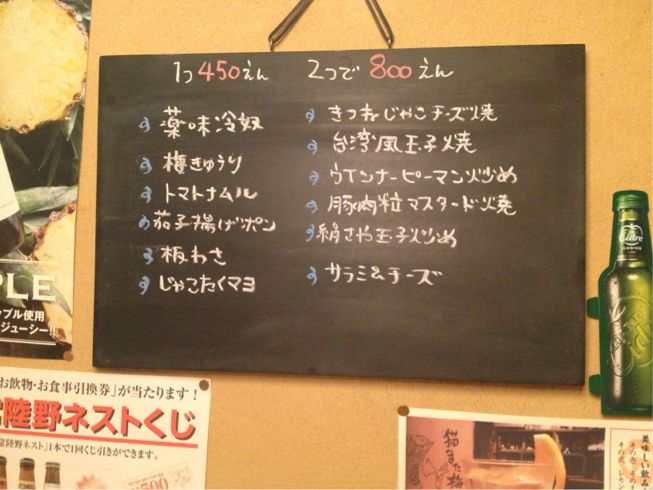 1つ450えん 2つで800えん
薬味冷奴
梅きゅうり
トマトナムル
茄子揚げポン
板わさ
じゃこたくマヨ
きつねじゃこチーズ焼
台湾風玉子焼
ウインナーピーマン炒め
豚肉粒マスタード焼
絹さや玉子炒め
サラミ&チーズ
PLE
ップル使用
ジューシー!!
お飲物・お食事引換券」が当たります!
常陸野ネストくじ
常陸野ネスト」1本で1回くじ引きができます。
500
猫また梅
美味しい飲み
その壱
その弐 レモン
Cidre